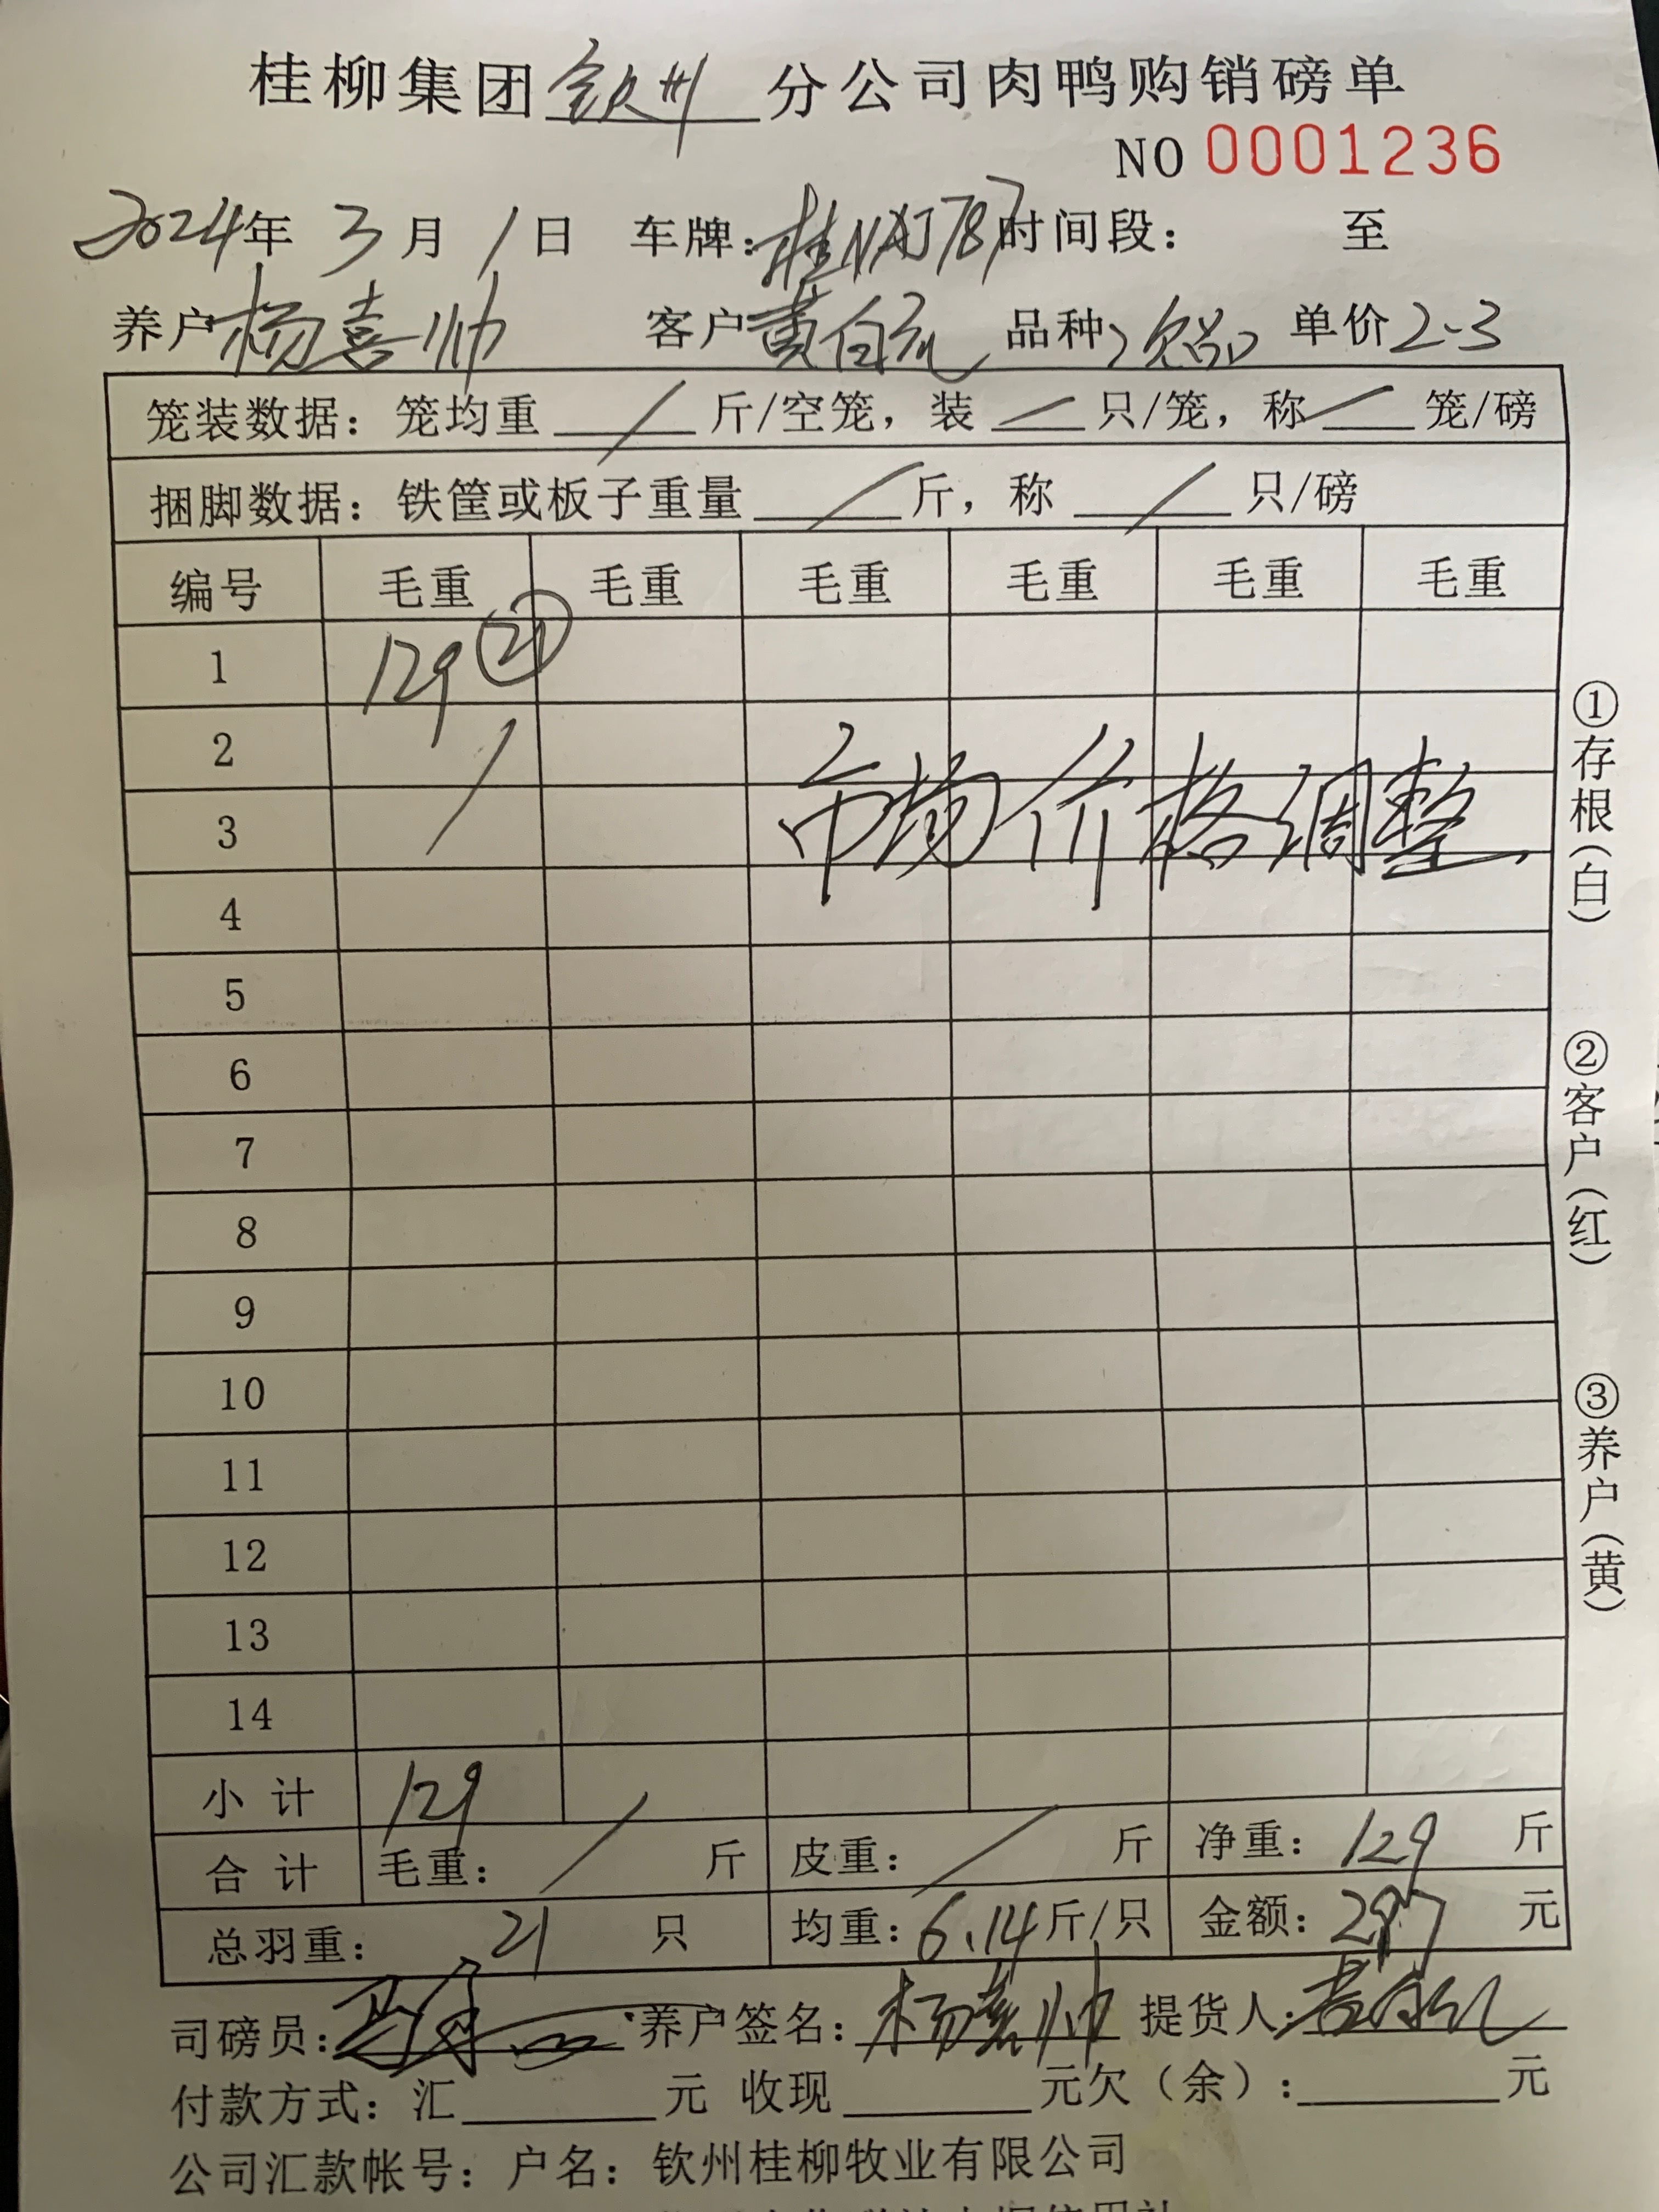 桂柳集团钦州分公司肉鸭购销磅单
NO 0001236
2024年 3月 1日 车牌:桂NAJ787 时间段: 至
养户 杨喜帅 客户 黄白 品种 次品 单价 2.3
笼装数据: 笼均重 / 斤/空笼, 装 / 只/笼, 称 / 笼/磅
捆脚数据: 铁筐或板子重量 / 斤, 称 / 只/磅
编号 毛重 毛重 毛重 毛重 毛重 毛重
1 129 ㉑
2 /
3
市场价格调整
4
5
6
7
8
9
10
11
12
13
14
小计 129
合计 毛重: / 斤 皮重: / 斤 净重: 129 斤
总羽重: 21 只 均重: 6.14 斤/只 金额: 297 元
司磅员: 养户签名: 杨喜帅 提货人:
付款方式: 汇 元 收现 元欠(余): 元
公司汇款帐号: 户名: 钦州桂柳牧业有限公司
①存根(白)
②客户(红)
③养户(黄)